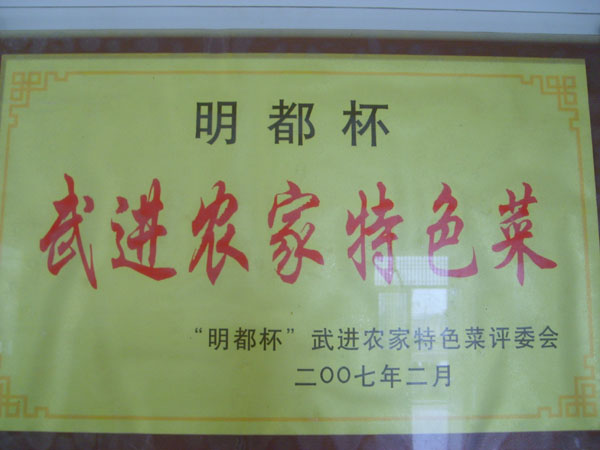 明都杯
武进农家特色菜
“明都杯”武进农家特色菜评委会
二〇〇七年二月